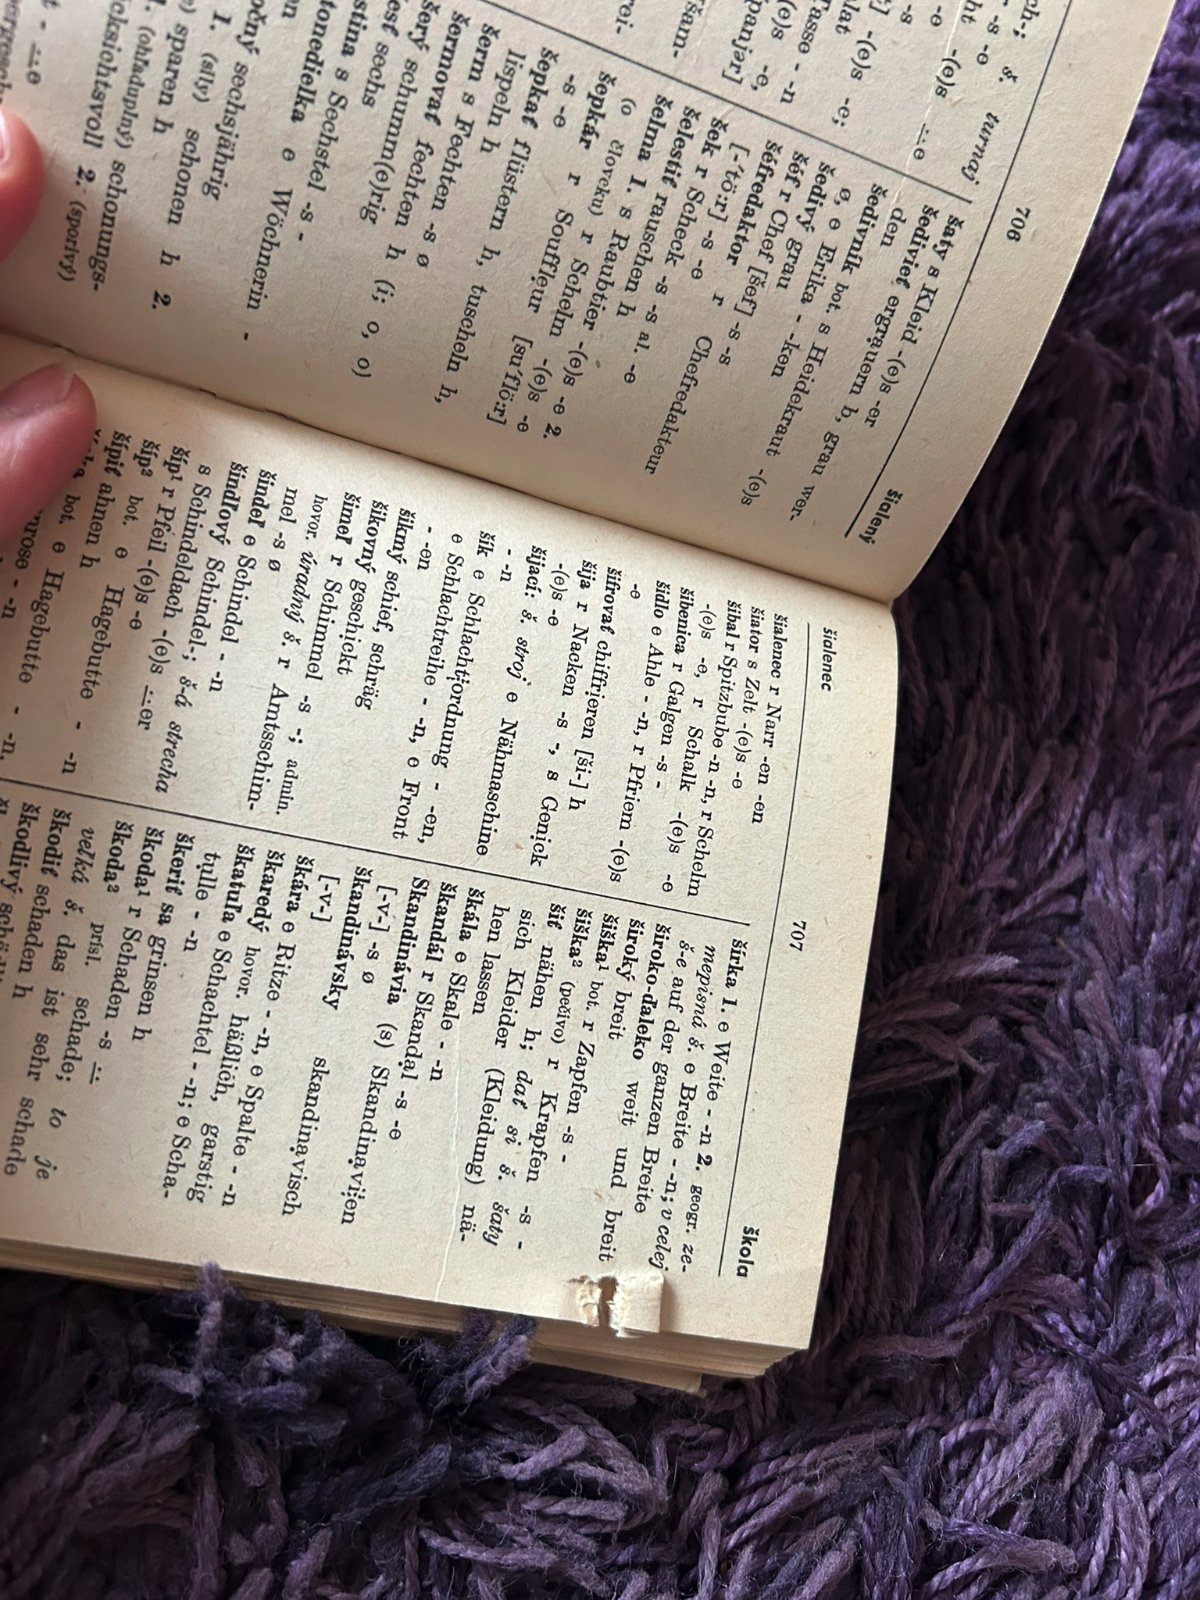 706
šialený
turnaj
šaty s Kleid -(e)s -er
šedivieť ergrauern h, grau wer-
den
šedivník bot. s Heidekraut -(e)s
ø, e Erika - -ken
šedivý grau
šéf r Chef [šef] -s -s
šéfredaktor r Chefredakteur
[-ˈtö:r] -s -e
šek r Scheck -s -s al. -e
šelestiť rauschen h
šelma 1. s Raubtier -(e)s -e 2.
(o človeku) r Schelm -(e)s -e
šepkár r Souffleur [suˈflö:r]
-s -e
šepkať flüstern h, tuscheln h,
lispeln h
šerm s Fechten -s ø
šermovať fechten h (i; o, o)
šerý schumm(e)rig
sechs
s Sechstel -s -
e Wöchnerin -
sechsjährig
1. (sily) schonen h 2.
sparen h
(ohľaduplný) schonungs-
2. (sporivý)
šialenec
707
škola
šialenec r Narr -en -en
šiator s Zelt -(e)s -e
šibal r Spitzbube -n -n, r Schelm
-(e)s -e, r Schalk -(e)s -e
šibenica r Galgen -s -
šidlo e Ahle - -n, r Pfriem -(e)s
-e
šifrovať chiffrieren [ši-] h
šija r Nacken -s -, s Genick
-(e)s -e
šijací: š. stroj e Nähmaschine
- -n
šik e Schlachtordnung - -en,
e Schlachtreihe - -n, e Front
- -en
šikmý schief, schräg
šikovný geschickt
šimeľ r Schimmel -s -; admin.
hovor. úradný š. r Amtsschim-
mel -s ø
šindeľ e Schindel - -n
šindľový Schindel-; š-á strecha
s Schindeldach -(e)s ⸚er
šíp¹ r Pfeil -(e)s -e
šíp² bot. e Hagebutte - -n
šípiť ahnen h
bot. e Hagebutte - -n,
šírka 1. e Weite - -n 2. geogr. ze-
mepisná š. e Breite - -n; v celej
š-e auf der ganzen Breite
široko-ďaleko weit und breit
široký breit
šiška¹ bot. r Zapfen -s -
šiška² (pečivo) r Krapfen -s -
šiť nähen h; dať si š. šaty
sich Kleider (Kleidung) nä-
hen lassen
škála e Skale - -n
škandál r Skandal -s -e
Škandinávia (s) Skandinavien
[-v-] -s ø
škandinávsky skandinavisch
[-v-]
škára e Ritze - -n, e Spalte - -n
škaredý hovor. häßlich, garstig
škatuľa e Schachtel - -n; e Scha-
tulle - -n
škeriť sa grinsen h
škoda¹ r Schaden -s ⸚
škoda² prísl. schade; to je
veľká š. das ist sehr schade
škodiť schaden h
škodlivý